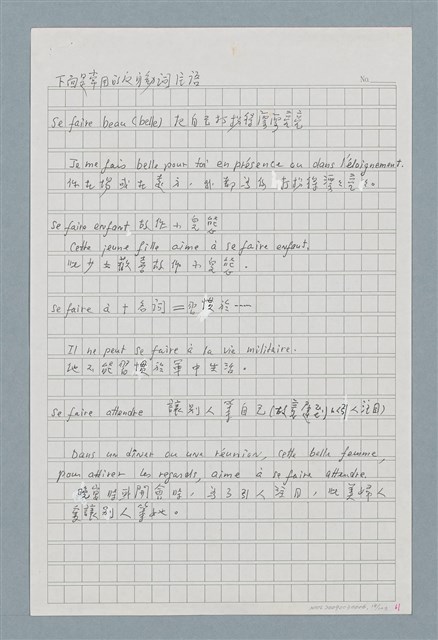 下面是常用的反身動詞片語
No.
se faire beau (belle) 把自己打扮得漂漂亮亮
Je me fais belle pour toi en présence ou dans l'éloignement.
你在場或在遠方,我都為你打扮得漂漂亮亮。
se faire enfant 故作小兒態
Cette jeune fille aime à se faire enfant.
此少女歡喜故作小兒態.
se faire à + 名詞 = 習慣於…
Il ne peut se faire à la vie militaire.
他不能習慣於軍中生活。
se faire attendre 讓別人等自己(故意遲到以引人注目)
Dans un dîner ou une réunion, cette belle femme,
pour attirer les regards, aime à se faire attendre.
晚宴時或開會時,為了引人注目,此美婦人
愛讓別人等她。